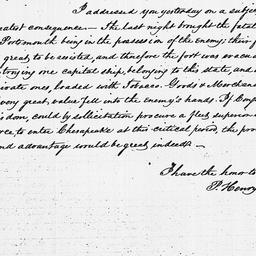 I addressed you yesterday on a subje
eatest consequence — The last night brought the fatal
Portsmouth being in the possession of the enemy: their f
great to be resisted, and therefore the fort was evacua
stroying one capital ship, belonging to this state, and o
rivate ones, loaded with Tobacco. Goods & Merchan
very great, value fell into the enemy's hands. If Cong
isdom, could by solicitation procure a fleet superior
rce, to enter Chesapeake at this critical period, the pro
and advantage would be great indeed —
I have the honor to
P. Henry